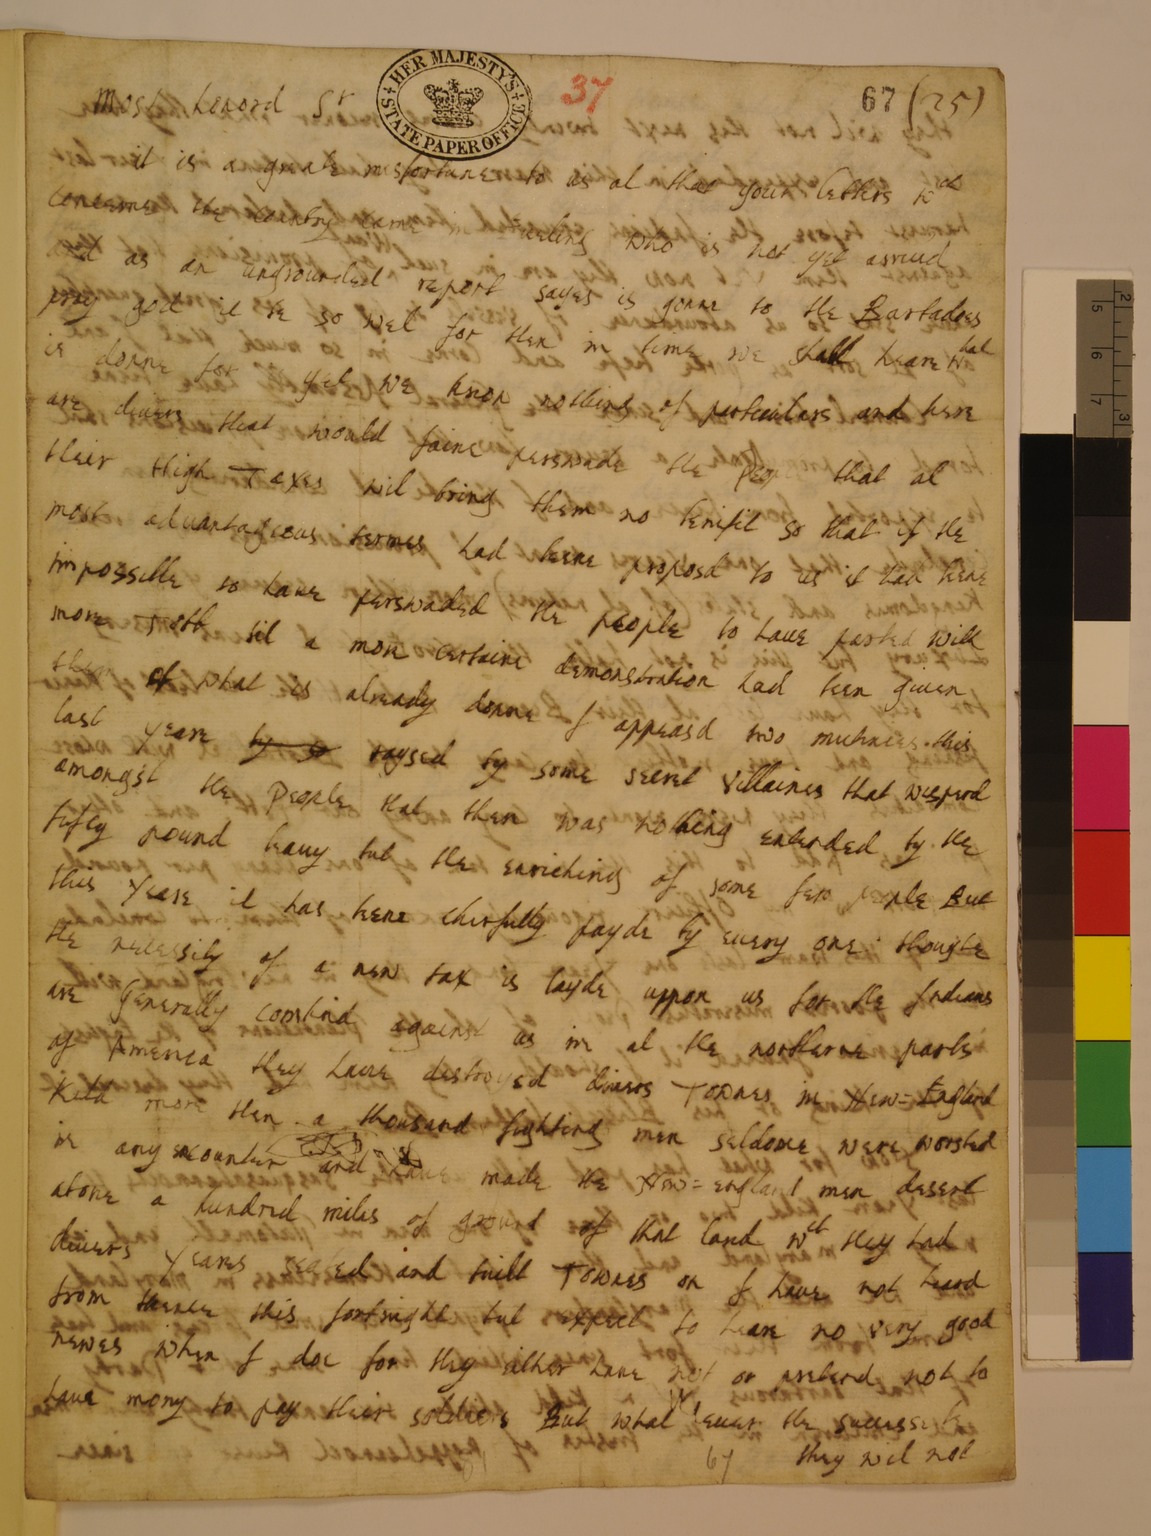 HER MAJESTY'S STATE PAPER OFFICE
37
67 (25)
Most honord Sr
it is a great misfortune to us al that your letters wch
concerne the country came in who is not yet arrivd
and as an ungrounded report sayes is gonne to the Barbadoes
pray god it be so wel for then in time we shall heare what
is donne for us yet we know nothing of perticulars and here
are divers that would faine perswade the People that al
their thigh Taxes wil bring them no benifit so that if the
most advantagious termes had beene proposd to us it had bene
impossible to have perswaded the people to have parted with
more till a more certaine demonstration had been given
them of what is already donne I appeasd two mutinies this
last yeare by so raysed by some secret villaines that wisperd
amongst the People that there was nothing entended by the
fifty pound leavy but the enriching of some few people But
this yeare it has bene cherfully payde by every one thoughe
the necessity of a new tax is layde uppon us for the Indians
are Generally combind against us in al the northerne parts
of America they have destroyed divers Townes in New=England
kild more then a thousand fighting men seldome were worsted
in any encounter and have made the New=england men desert
above a hundred miles of ground of that land wch they had
divers Years seated and built Townes on I have not heard
from thence this fortnight but expect to heare no very good
newes when I doe for they either have not or pretend not to
have mony to pay their soldiers But what ever the successe be
67 they wil not